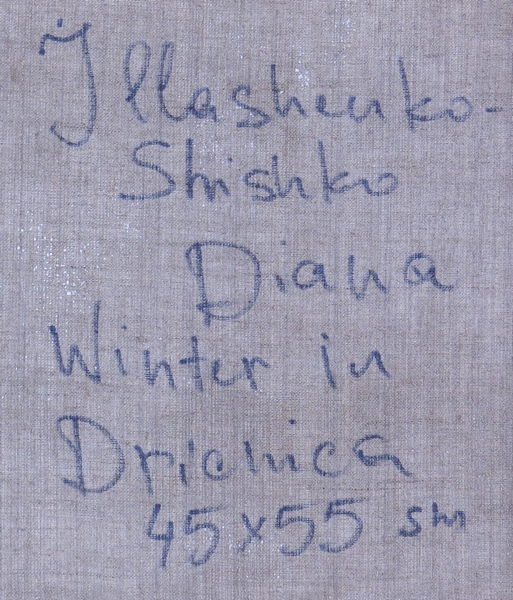 Illashenko-
Shishko
Diana
Winter in
45x55 sm